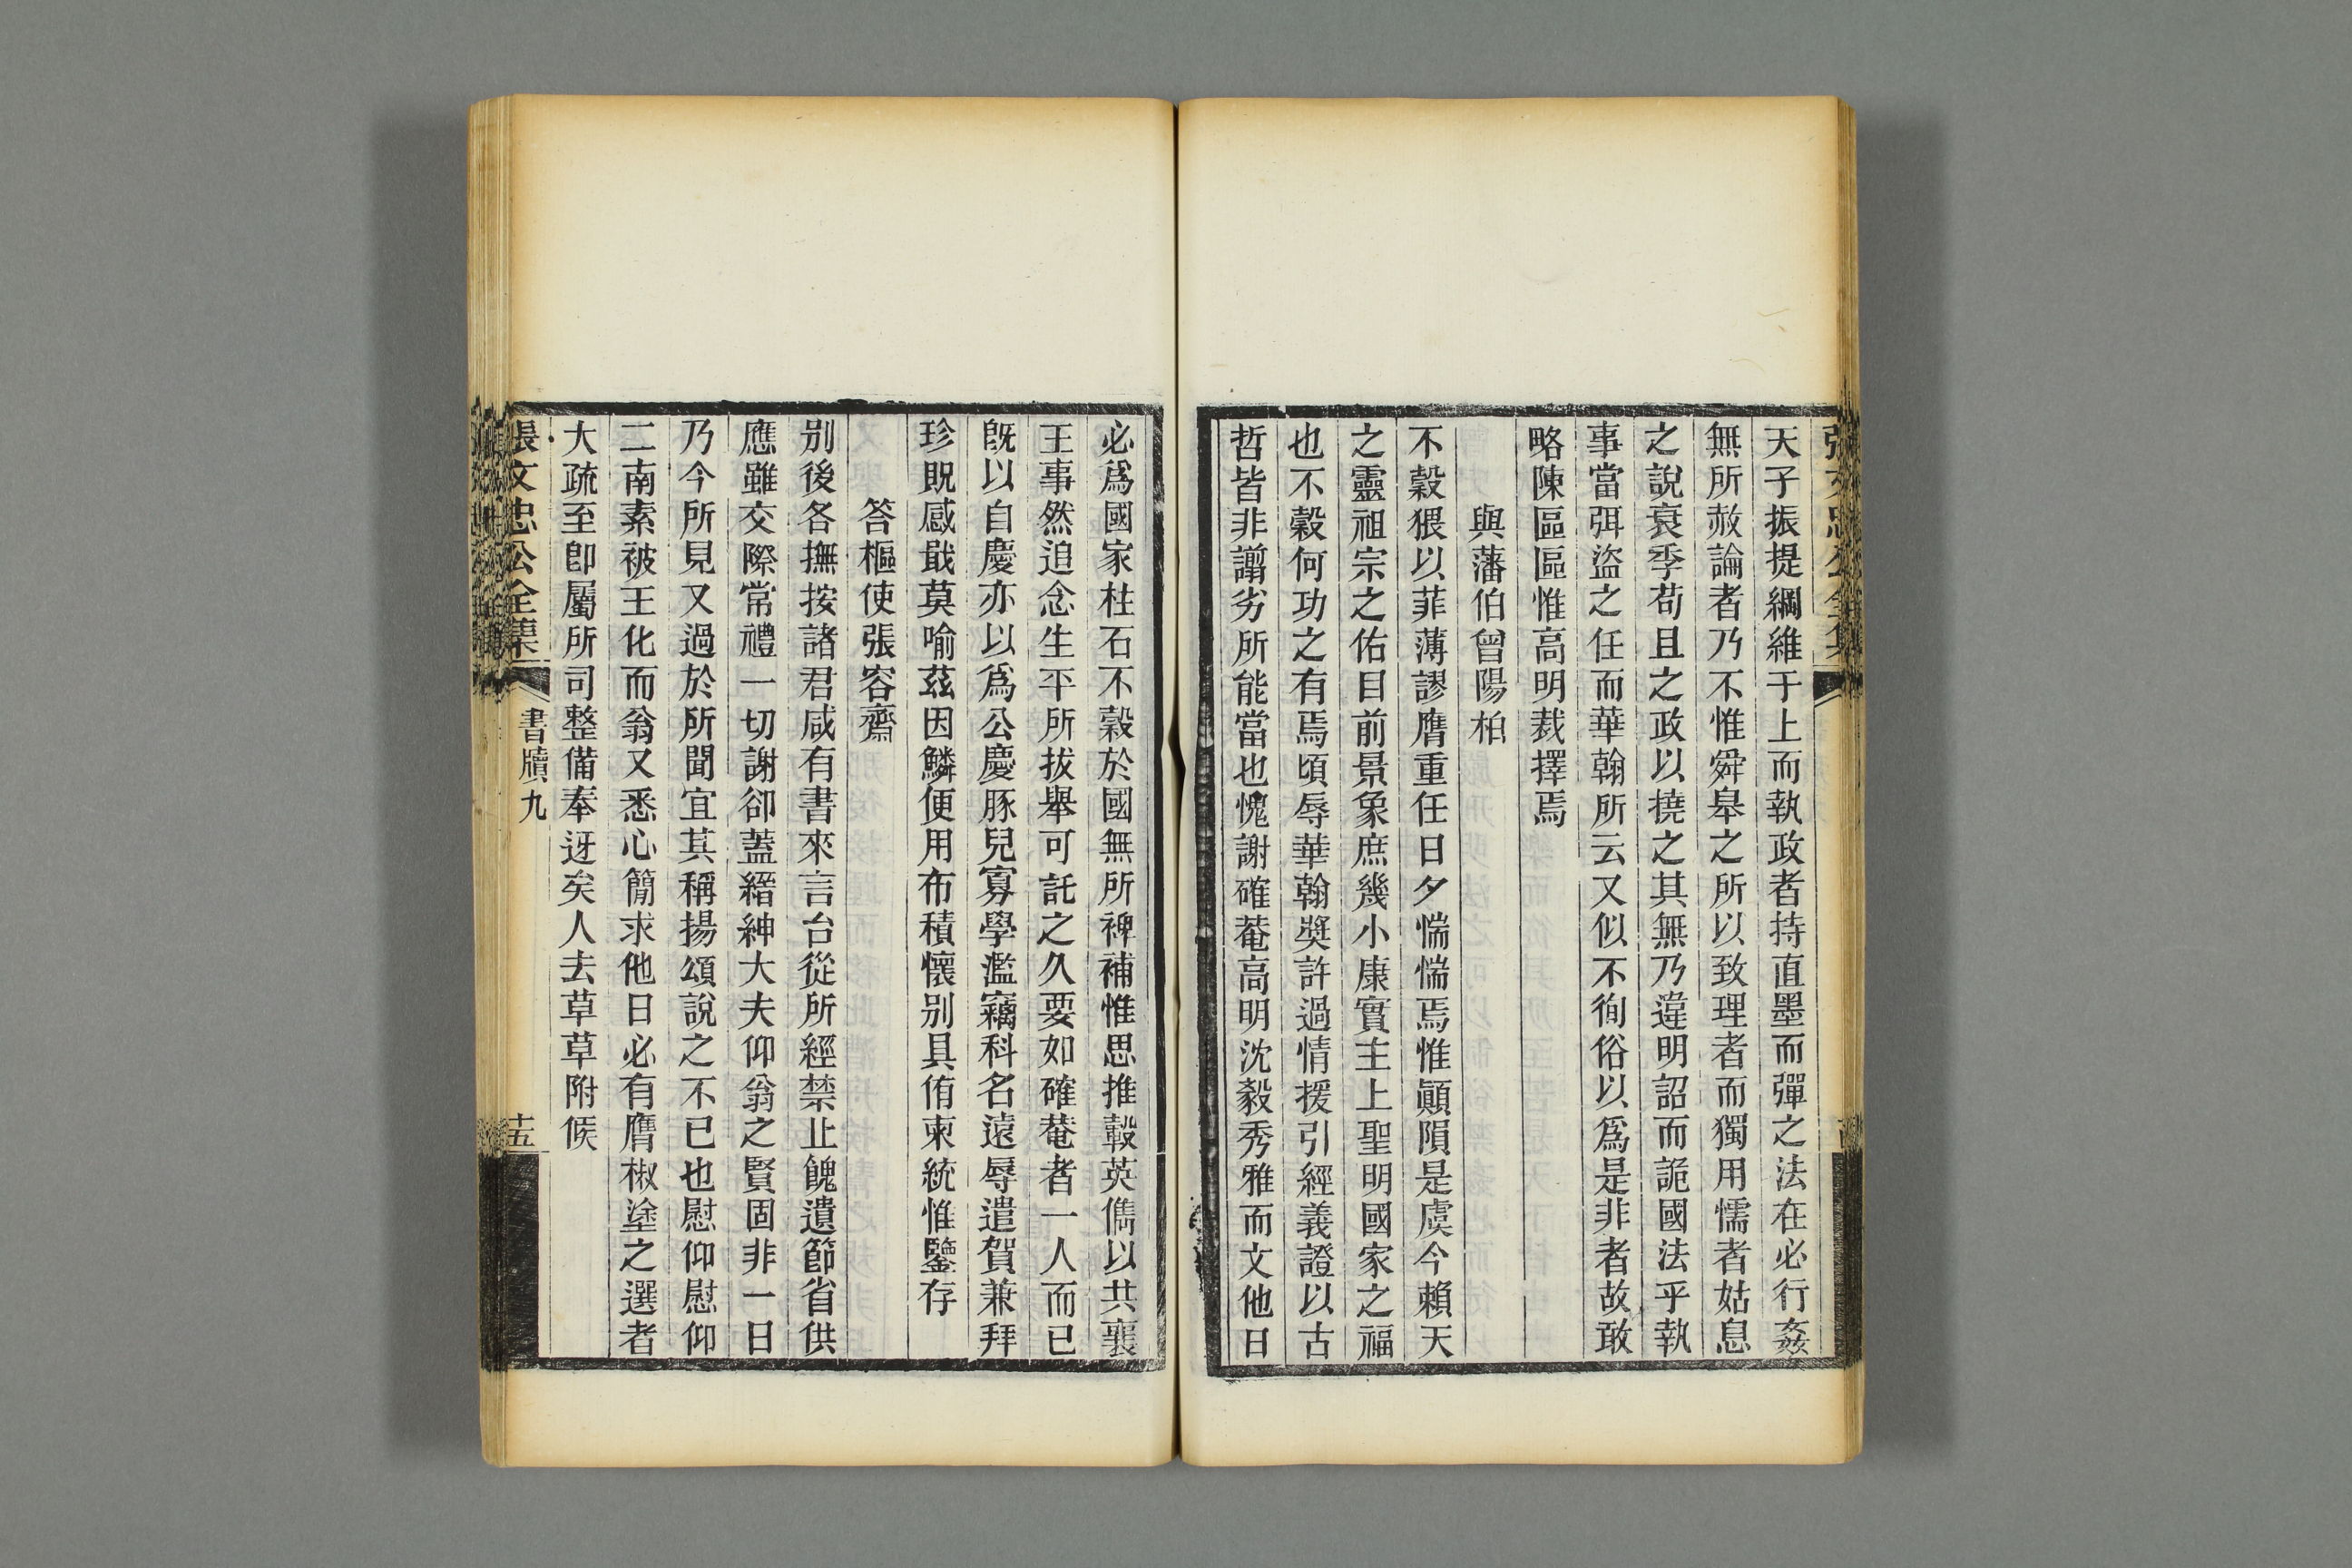 天子振提綱維于上而執政者持直墨而彈之法在必行姦
無所赦論者乃不惟舜皋之所以致理者而獨用懦者姑息
之說衰季苟且之政以撓之其無乃違明詔而詭國法乎執
事當弭盜之任而華翰所云又似不徇俗以爲是非者故敢
略陳區區惟高明裁擇焉
與藩伯曾陽柏
不穀猥以菲薄謬膺重任日夕惴惴焉惟顚隕是虞今賴天
之靈祖宗之佑目前景象庶幾小康實主上聖明國家之福
也不穀何功之有焉頃辱華翰奬許過情援引經義證以古
哲皆非譾劣所能當也愧謝確菴高明沈毅秀雅而文他日
必爲國家柱石不穀於國無所裨補惟思推轂英儁以共襄
王事然追念生平所拔舉可託之久要如確菴者一人而已
旣以自慶亦以爲公慶豚兒寡學濫竊科名遠辱遣賀兼拜
珍貺感戢莫喻茲因鱗便用布積懷别具侑柬統惟鑒存
答樞使張容齋
别後各撫按諸君咸有書來言台從所經禁止餽遺節省供
應雖交際常禮一切謝卻蓋縉紳大夫仰翁之賢固非一日
乃今所見又過於所聞宜其稱揚頌說之不已也慰仰慰仰
二南素被王化而翁又悉心簡求他日必有膺椒塗之選者
大疏至卽屬所司整備奉迓矣人去草草附候
張文忠公全集
書牘九
十五